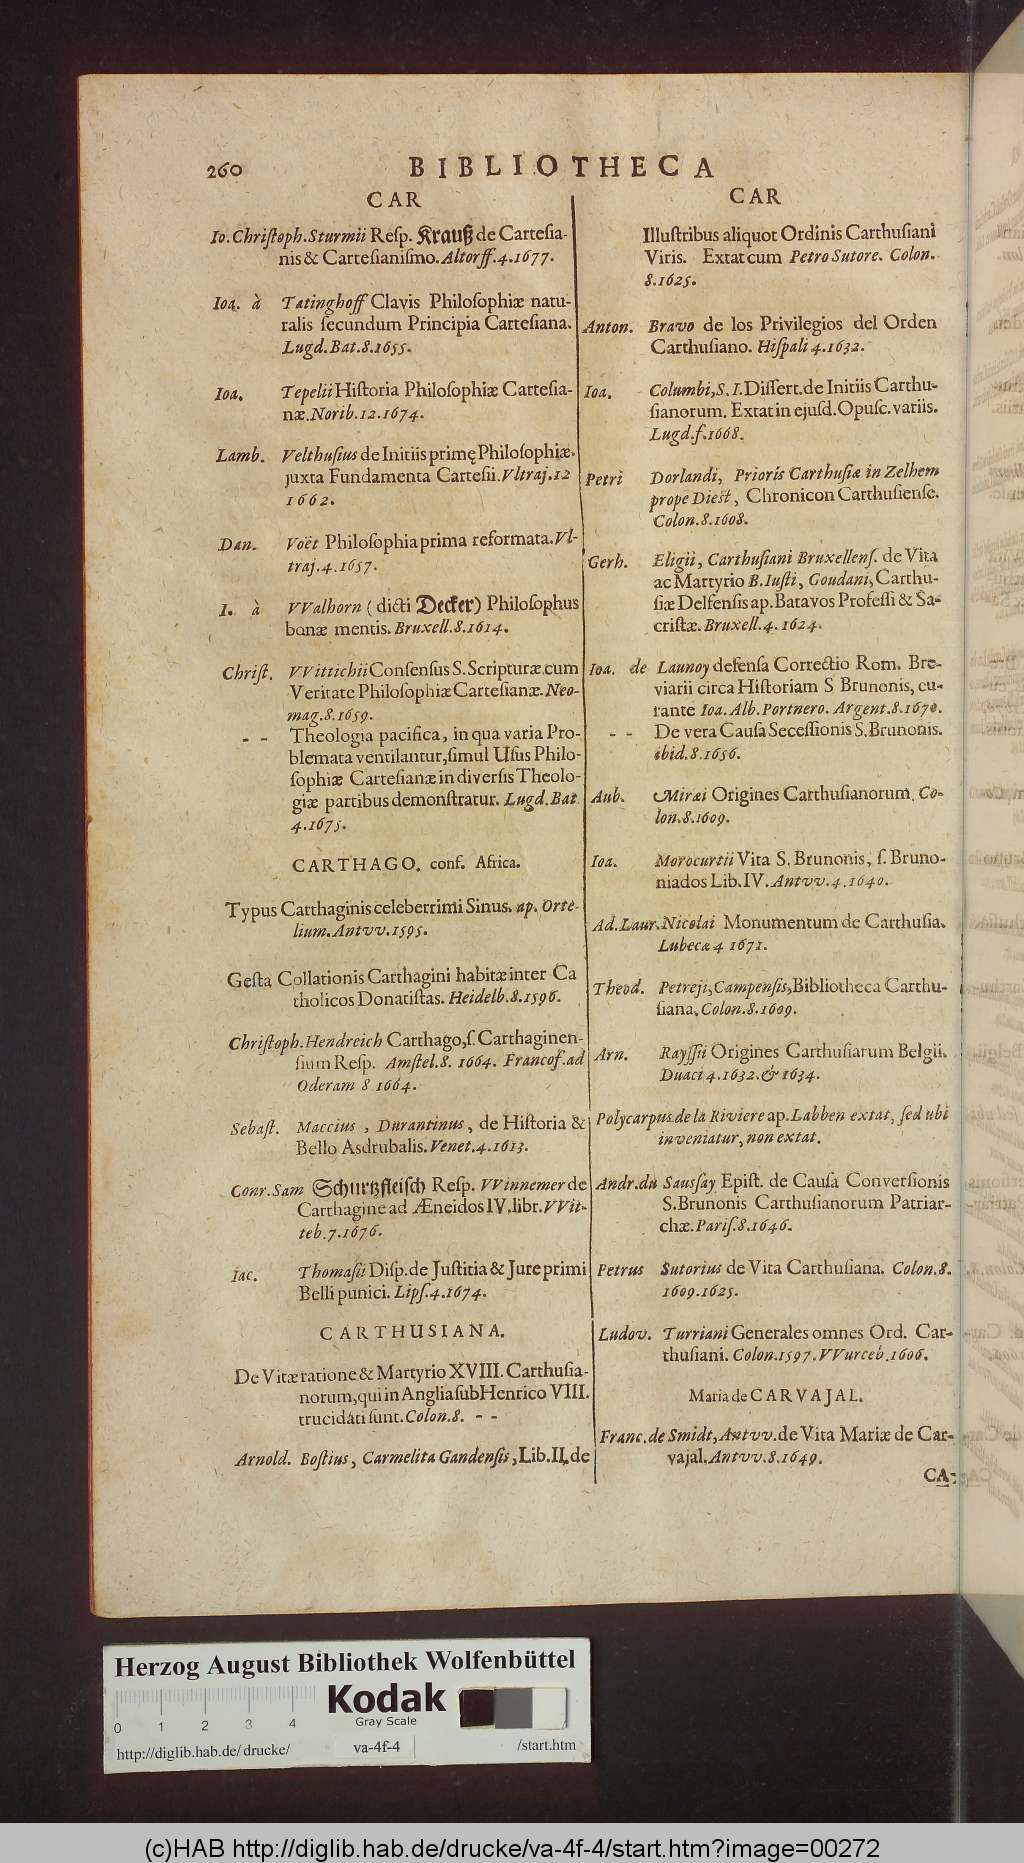 260 BIBLIOTHECA
CAR
Io. Chriſtoph. Sturmii Reſp. Krauß de Carteſia-
nis & Carteſianiſmo. Altorff. 4. 1677.
Ioa. à Tatinghoff Clavis Philoſophiæ natu-
ralis ſecundum Principia Carteſiana.
Lugd. Bat. 8. 1655.
Ioa. Tepelii Hiſtoria Philoſophiæ Carteſia-
næ. Norib. 12. 1674.
Lamb. Velthuſius de Initiis primę Philoſophiæ.
juxta Fundamenta Carteſii. Vltraj. 12
1662.
Dan. Voët Philoſophia prima reformata. Vl-
traj. 4. 1657.
I. à VValhorn (dicti Decker) Philoſophus
bonæ mentis. Bruxell. 8. 1614.
Chriſt. VVittichii Conſenſus S. Scripturæ cum
Veritate Philoſophiæ Carteſianæ. Neo-
mag. 8. 1659.
- - Theologia pacifica, in qua varia Pro-
blemata ventilantur, ſimul Uſus Philo-
ſophiæ Carteſianæ in diverſis Theolo-
giæ partibus demonſtratur. Lugd. Bat
4. 1675.
CARTHAGO. conf. Africa.
Typus Carthaginis celeberrimi Sinus. ap. Orte-
lium. Antvv. 1595.
Geſta Collationis Carthagini habitæ inter Ca
tholicos Donatiſtas. Heidelb. 8. 1596.
Chriſtoph. Hendreich Carthago, ſ. Carthaginen-
ſium Reſp. Amſtel. 8. 1664. Francof. ad
Oderam 8 1664.
Sebaſt. Maccius, Durantinus, de Hiſtoria &
Bello Asdrubalis. Venet. 4. 1613.
Conr. Sam Schurtzfleiſch Reſp. VVinnemer de
Carthagine ad Æneidos IV. libr. VVit-
teb. 7. 1676.
Iac. Thomaſii Diſp. de Juſtitia & Jure primi
Belli punici. Lipſ. 4. 1674.
CARTHUSIANA.
De Vitæ ratione & Martyrio XVIII. Carthuſia-
norum, qui in Anglia ſub Henrico VIII.
trucidati ſunt. Colon. 8. - -
Arnold. Boſtius, Carmelita Gandenſis, Lib. II. de
CAR
Illuſtribus aliquot Ordinis Carthuſiani
Viris. Extat cum Petro Sutore. Colon.
8. 1625.
Anton. Bravo de los Privilegios del Orden
Carthuſiano. Hiſpali 4. 1632.
Ioa. Columbi, S. I. Diſſert. de Initiis Carthu-
ſianorum. Extat in ejuſd. Opuſc. variis.
Lugd. f. 1668.
Petri Dorlandi, Prioris Carthuſiæ in Zelhem
prope Dieſt, Chronicon Carthuſienſe.
Colon. 8. 1608.
Gerh. Eligii, Carthuſiani Bruxellenſ. de Vita
ac Martyrio B. Iuſti, Goudani, Carthu-
ſiæ Delfenſis ap. Batavos Profeſſi & Sa-
criſtæ. Bruxell. 4. 1624.
Ioa. de Launoy defenſa Correctio Rom. Bre-
viarii circa Hiſtoriam S Brunonis, cu-
rante Ioa. Alb. Portnero. Argent. 8. 1670.
- - De vera Cauſa Seceſſionis S. Brunonis.
ibid. 8. 1656.
Aub. Miræi Origines Carthuſianorum. Co-
lon. 8. 1609.
Ioa. Morocurtii Vita S. Brunonis, ſ. Bruno-
niados Lib. IV. Antvv. 4. 1640.
Ad. Laur. Nicolai Monumentum de Carthuſia.
Lubecæ 4 1671.
Theod. Petreji, Campenſis, Bibliotheca Carthu-
ſiana. Colon. 8. 1609.
Arn. Rayſſii Origines Carthuſiarum Belgii.
Duaci 4. 1632. & 1634.
Polycarpus de la Riviere ap. Labben extat, ſed ubi
inveniatur, non extat.
Andr. du Sauſſay Epiſt. de Cauſa Converſionis
S. Brunonis Carthuſianorum Patriar-
chæ. Pariſ. 8. 1646.
Petrus Sutorius de Vita Carthuſiana. Colon. 8.
1609. 1625.
Ludov. Turriani Generales omnes Ord. Car-
thuſiani. Colon. 1597. VVurceb. 1606.
Maria de CARVAJAL.
Franc. de Smidt, Antvv. de Vita Mariæ de Car-
vajal. Antvv. 8. 1649.
CA-
Herzog August Bibliothek Wolfenbüttel
0 1 2 3 4
Kodak
Gray Scale
http://diglib.hab.de/drucke/ va-4f-4 /start.htm
(c)HAB http://diglib.hab.de/drucke/va-4f-4/start.htm?image=00272